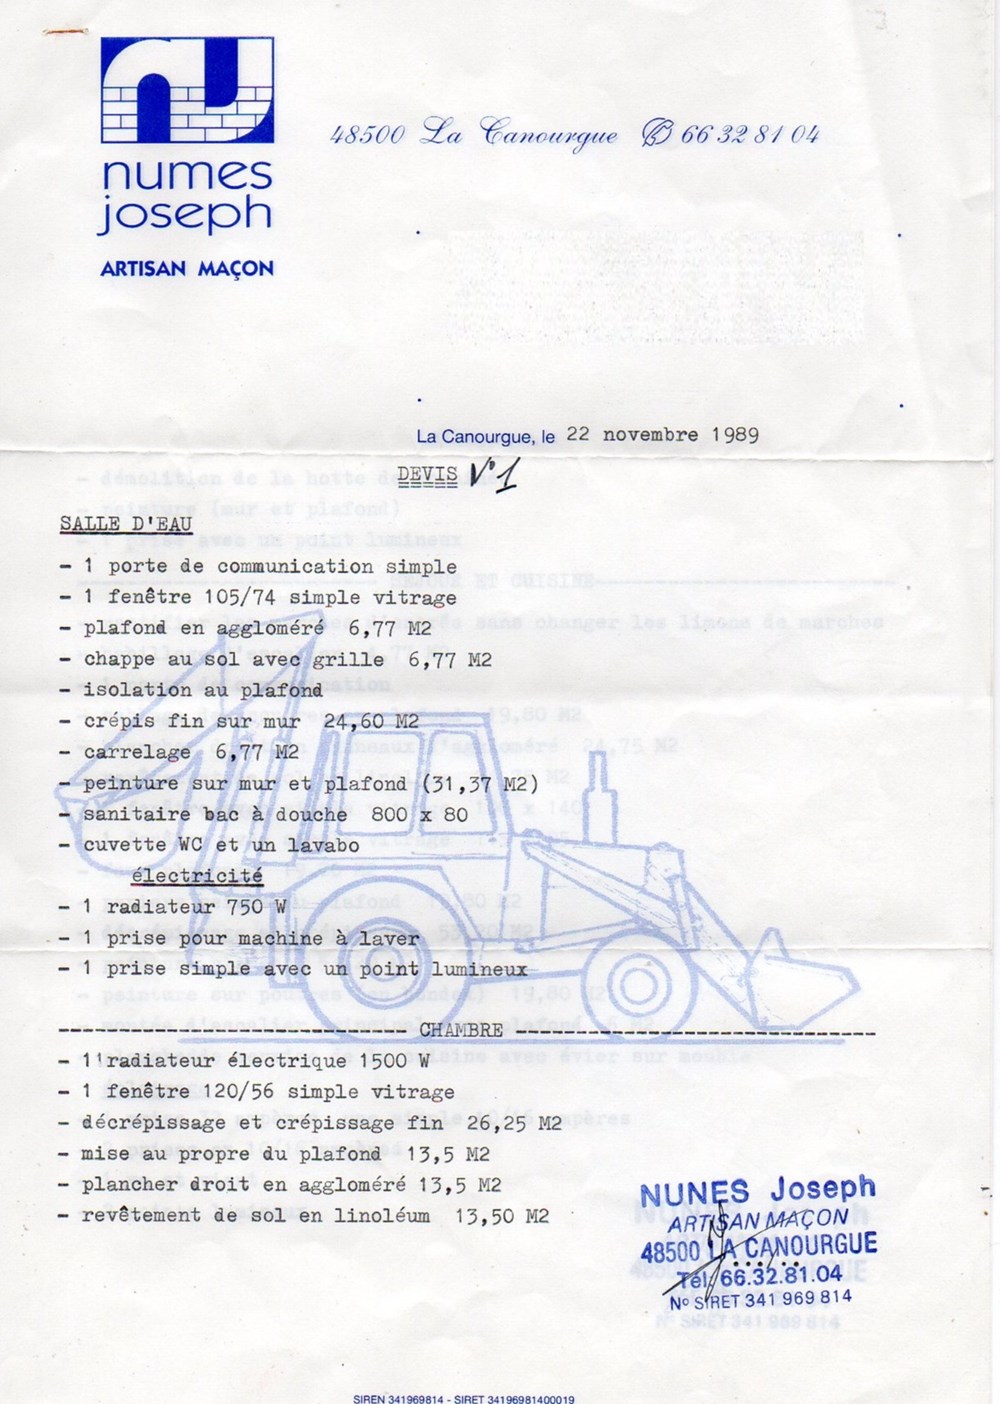 48500 La Canourgue 66 32 81 04
numes
joseph
ARTISAN MAÇON
La Canourgue, le 22 novembre 1989
DEVIS N°1
SALLE D'EAU
- 1 porte de communication simple
- 1 fenêtre 105/74 simple vitrage
- plafond en aggloméré 6,77 M2
- chappe au sol avec grille 6,77 M2
- isolation au plafond
- crépis fin sur mur 24,60 M2
- carrelage 6,77 M2
- peinture sur mur et plafond (31,37 M2)
- sanitaire bac à douche 800 x 80
- cuvette WC et un lavabo
électricité
- 1 radiateur 750 W
- 1 prise pour machine à laver
- 1 prise simple avec un point lumineux
CHAMBRE
- 1 radiateur électrique 1500 W
- 1 fenêtre 120/56 simple vitrage
- décrépissage et crépissage fin 26,25 M2
- mise au propre du plafond 13,5 M2
- plancher droit en aggloméré 13,5 M2
- revêtement de sol en linoléum 13,50 M2
NUNES Joseph
ARTISAN MAÇON
48500 LA CANOURGUE
Tél. 66.32.81.04
N° SIRET 341 969 814
SIREN 341969814 - SIRET 34196981400019